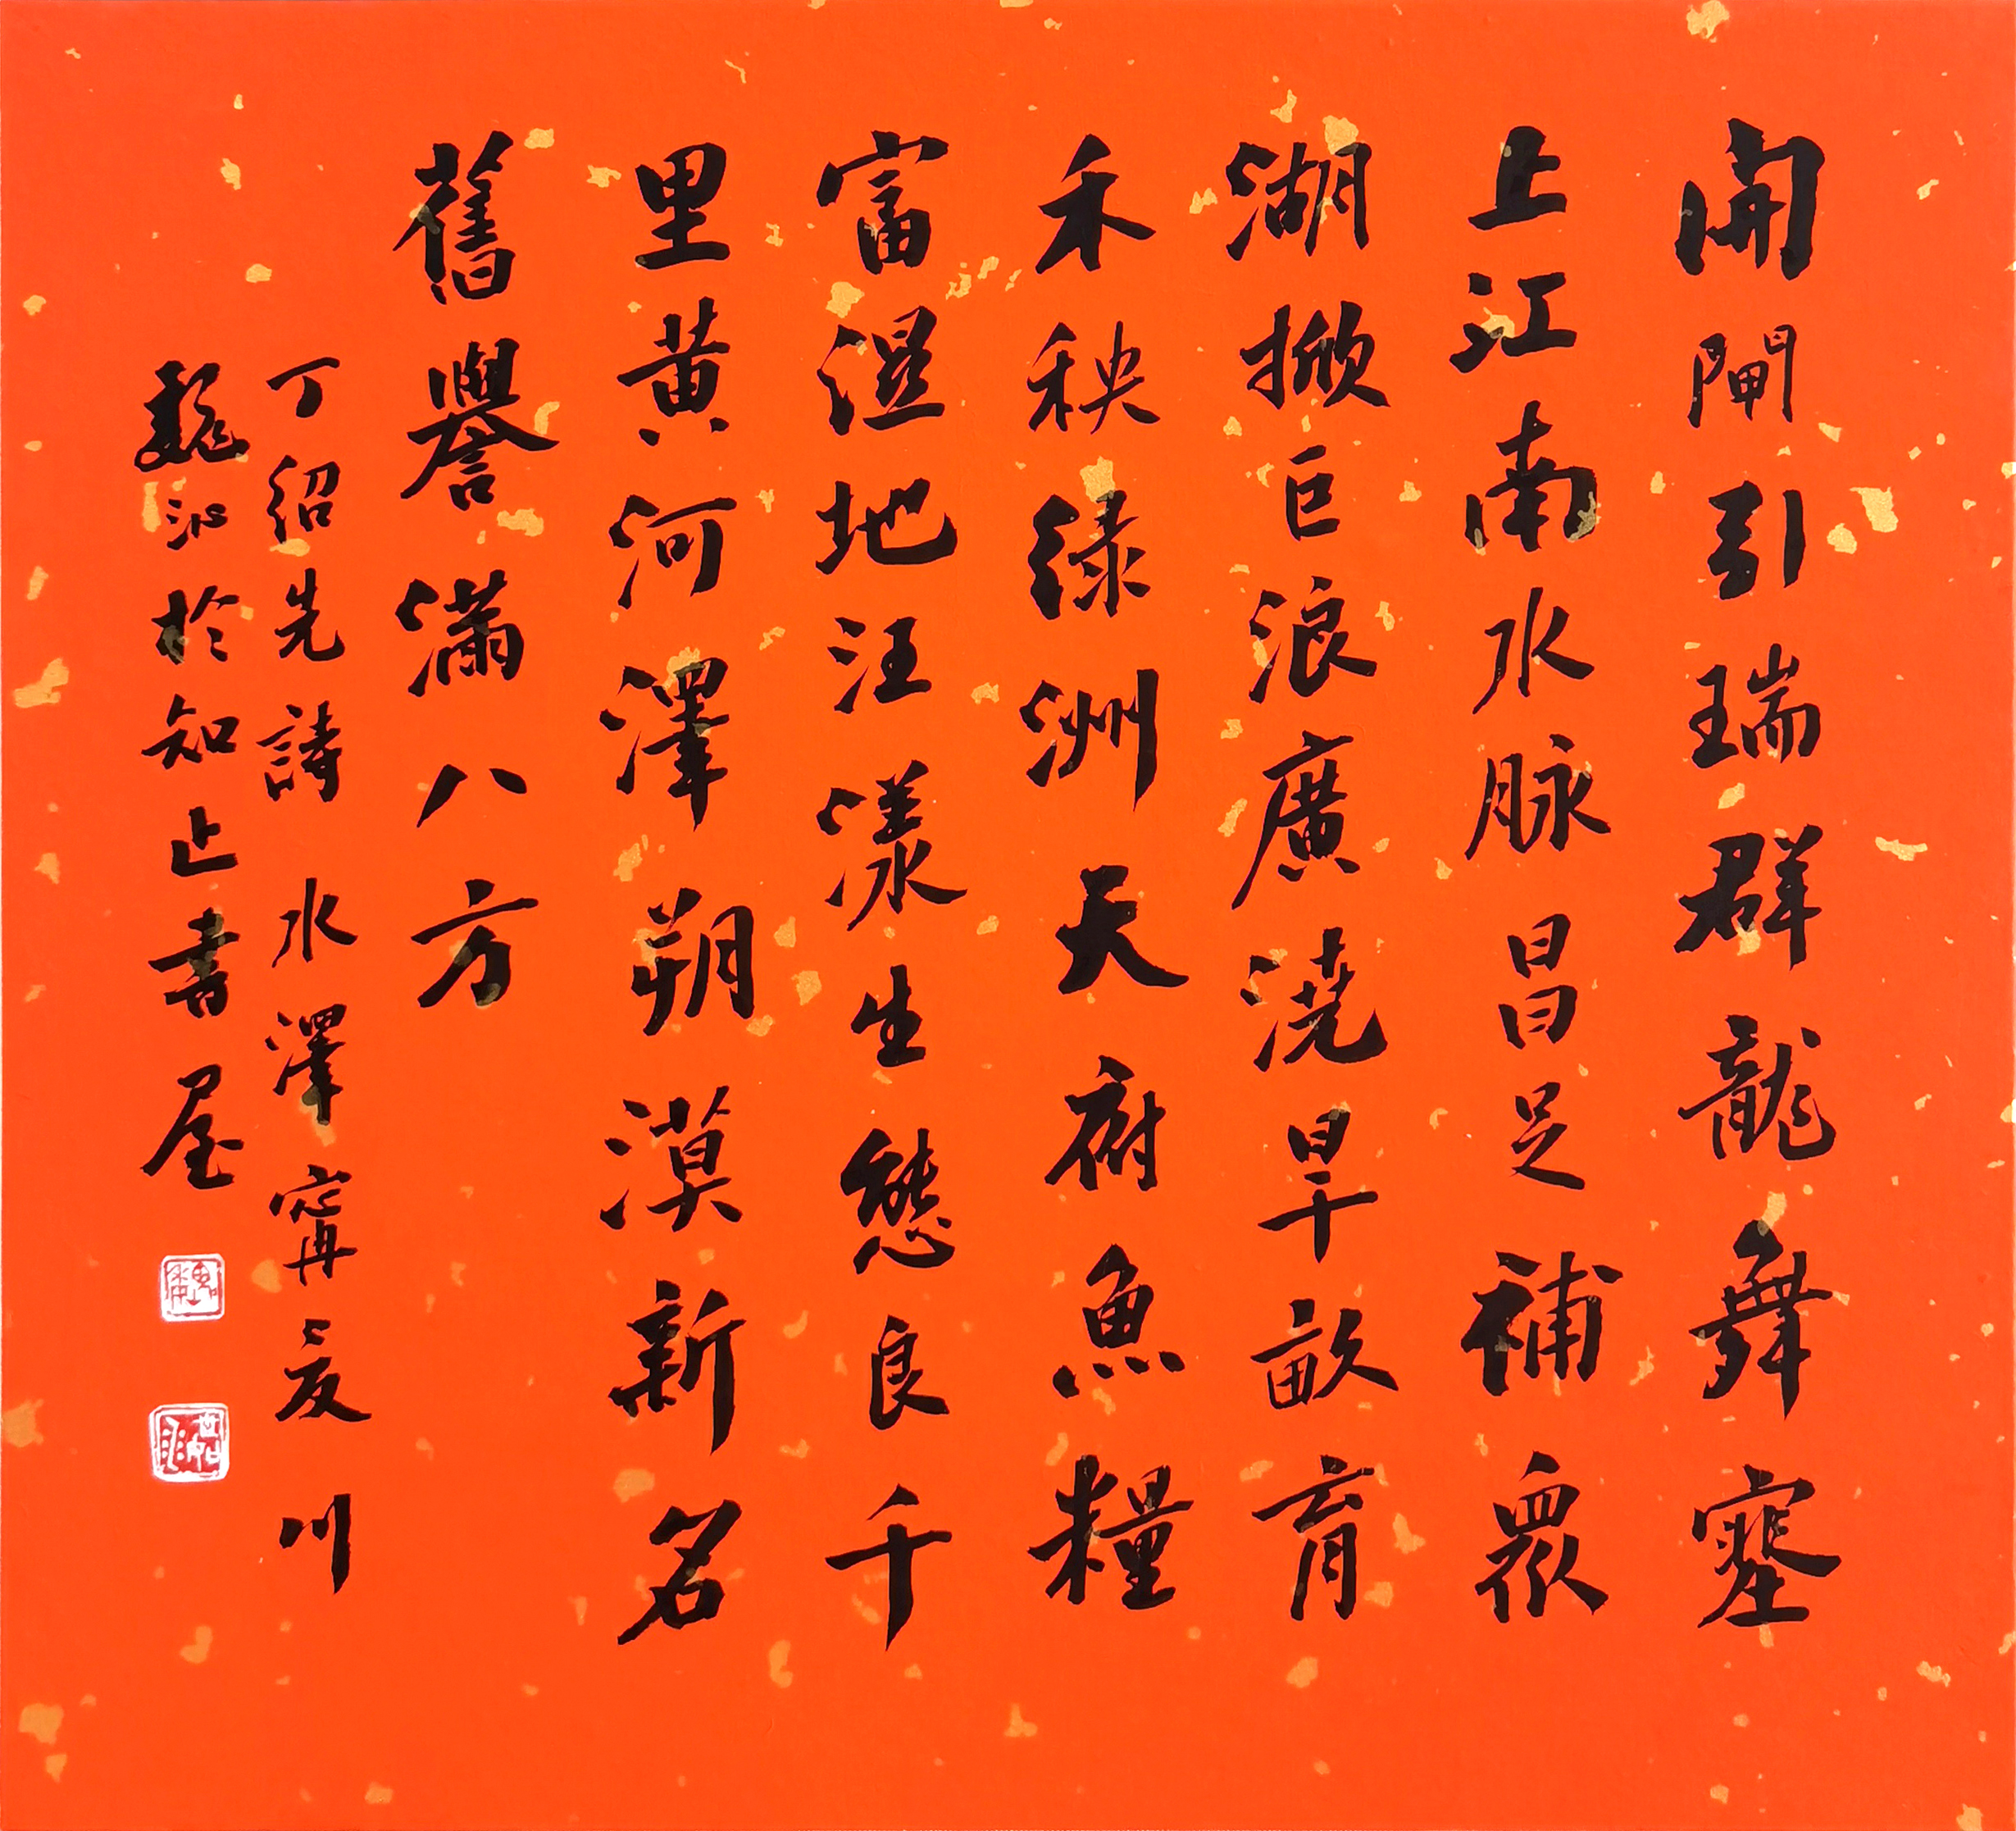 開閘引瑞群龍舞塞
上江南水脉昌足補眾
湖掀巨浪廣澆旱畝育
禾秧绿洲天府魚糧
富濕地汪漾生態良千
里黄河澤朔漠新名
舊譽滿八方
丁紹先詩 水澤寧夏 川
魏 於知止書屋